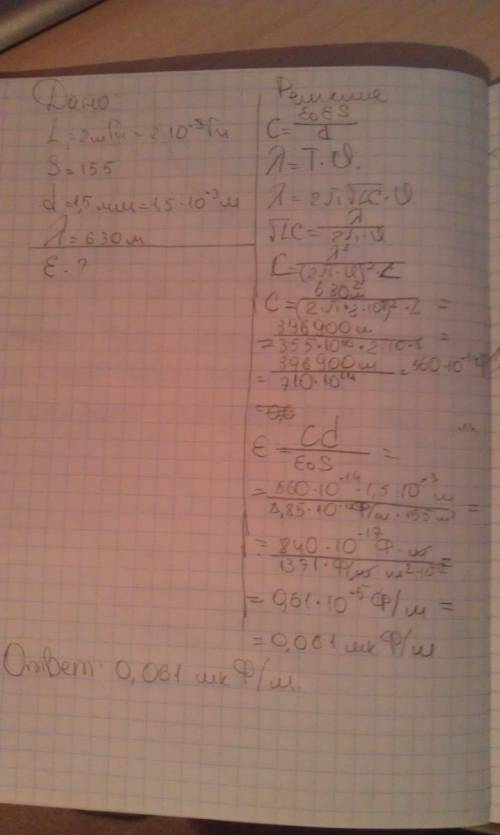 Дано:
L = 2мГн = 2·10⁻³Гн
S = 155
d = 1,5 мм = 1,5·10⁻³ м
λ = 630 м
ε - ?
Решение
C = ε₀εS / d
λ = T·υ.
λ = 2π√LC·υ
√LC = λ / 2π·υ
C = λ² / (2π·υ)²·L
C = 630²м / (2π·3·10⁸)²·L =
= 396900 м / 355·10¹⁶·2·10⁻³ =
= 396900 м / 710·10¹⁴ = 560·10⁻¹⁴
ε = Cd / ε₀S =
= 560·10⁻¹⁴·1,5·10⁻³ м / 8,85·10⁻¹² Ф/м·155 м² =
= 840·10⁻¹⁷ Ф·м / 1371·Ф/м м²·10⁻¹² =
= 0,61·10⁻⁵ Ф/м =
= 0,061 мкФ/м
Ответ: 0,061 мкФ/м.